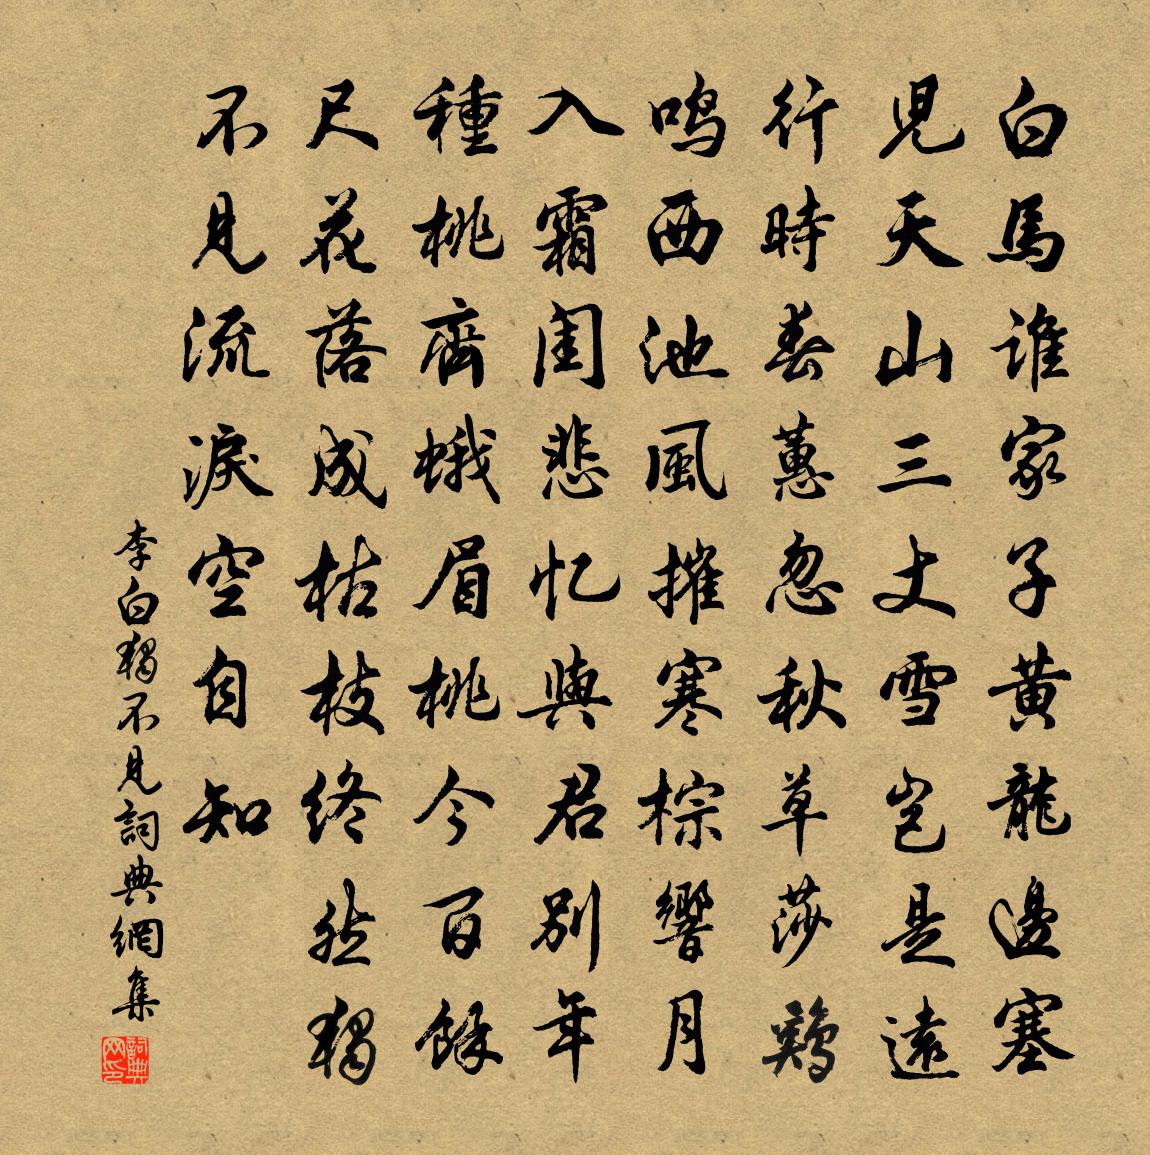 白馬誰家子黃龍邊塞
兒天山三丈雪豈是遠
行時春蕙忽秋草莎鷄
鳴西池風摧寒棕響月
入霜閨悲忆與君別年
種桃齊蛾眉桃今百餘
尺花落成枯枝終然獨
不見流淚空自知
李白獨不見詞典網集
詞典网印